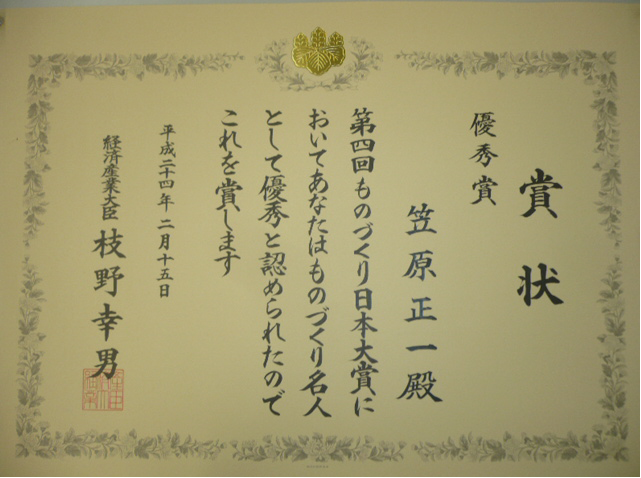 賞状
優秀賞
笠原正一殿
第四回ものづくり日本大賞に
おいてあなたはものづくり名人
として優秀と認められたので
これを賞します
平成二十四年二月十五日
経済産業大臣 枝野幸男